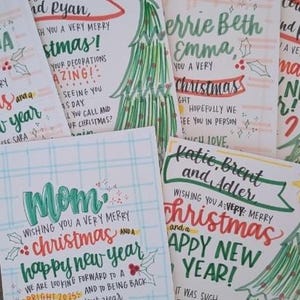 and Ryan,
YOU A VERY MERRY
stmas!
YOUR DECORATIONS
AZING!
SEEING YOU
S DAY.
YOU CALL AND
UR CHRISTMAS?
errie Beth
Emma,
A VERY MERRY
Christmas
HOPEFULLY WE
SEE YOU IN PERSON
CH LOVE,
and a
year
Mom,
WISHING YOU A VERY MERRY
christmas AND A
happy new year
WE ARE LOOKING FORWARD TO A
BRIGHT 2025 AND TO BEING BACK
Katie, Brent
and Adler,
WISHING YOU A VERY MERRY
Christmas
and a
APPY NEW
YEAR!
IT WAS SUCH